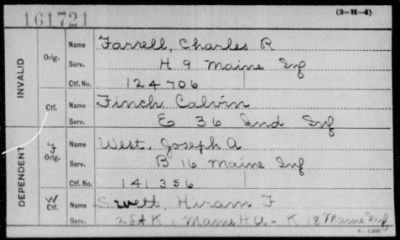 161721
(3-11-4)
INVALID
Orig.
Name Farrell, Charles R
Serv. H 9 Maine Inf
Ctf. No. 124706
Ctf.
Name Finch Calvin
Serv. E 36 Ind Inf
DEPENDENT
Orig.
Name West, Joseph A
Serv. B 16 Maine Inf
Ctf. No. 141356
W
Ctf.
Name Swett, Hiram F
Serv. Maine H A - K 18 Maine Inf